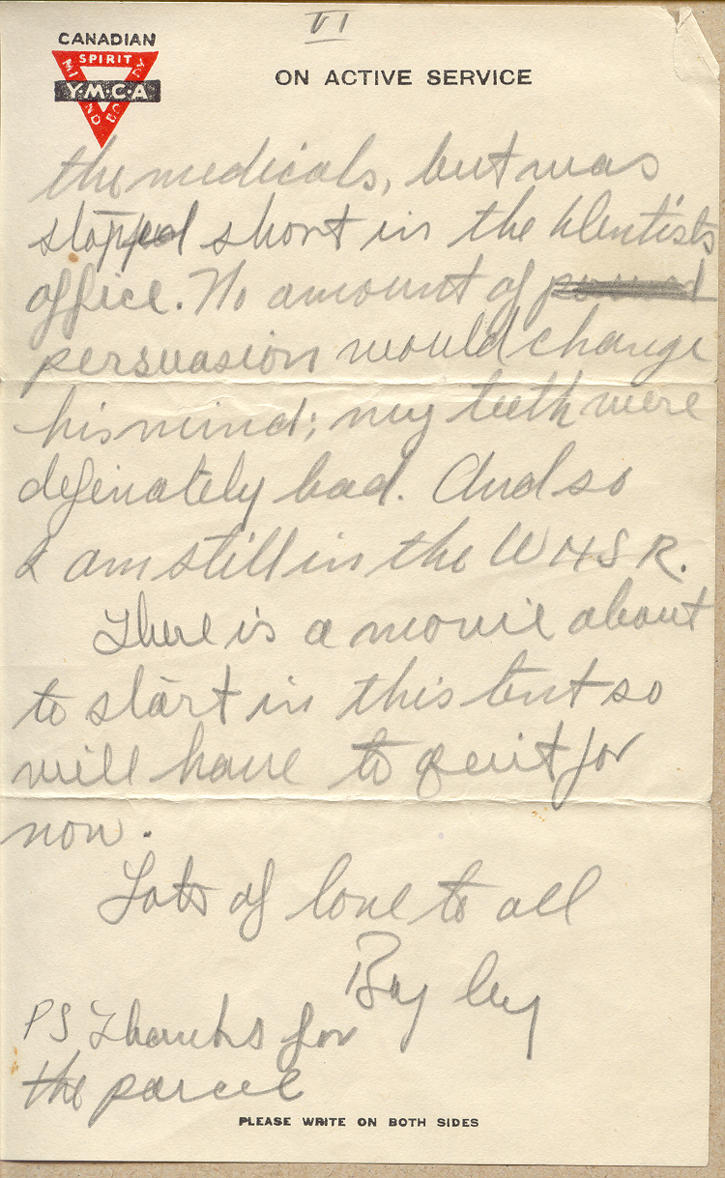 VI
CANADIAN
SPIRIT
MIND
BODY
Y·M·C·A
ON ACTIVE SERVICE
the medicals, but was
stopped short in the dentists
office. No amount of
persuasion would change
his mind; my teeth were
definately bad. And so
I am still in the WHSR.
There is a movie about
to start in this tent so
will have to quit for
now.
Lots of love to all
Bay
PS Thanks for
the parcel
PLEASE WRITE ON BOTH SIDES